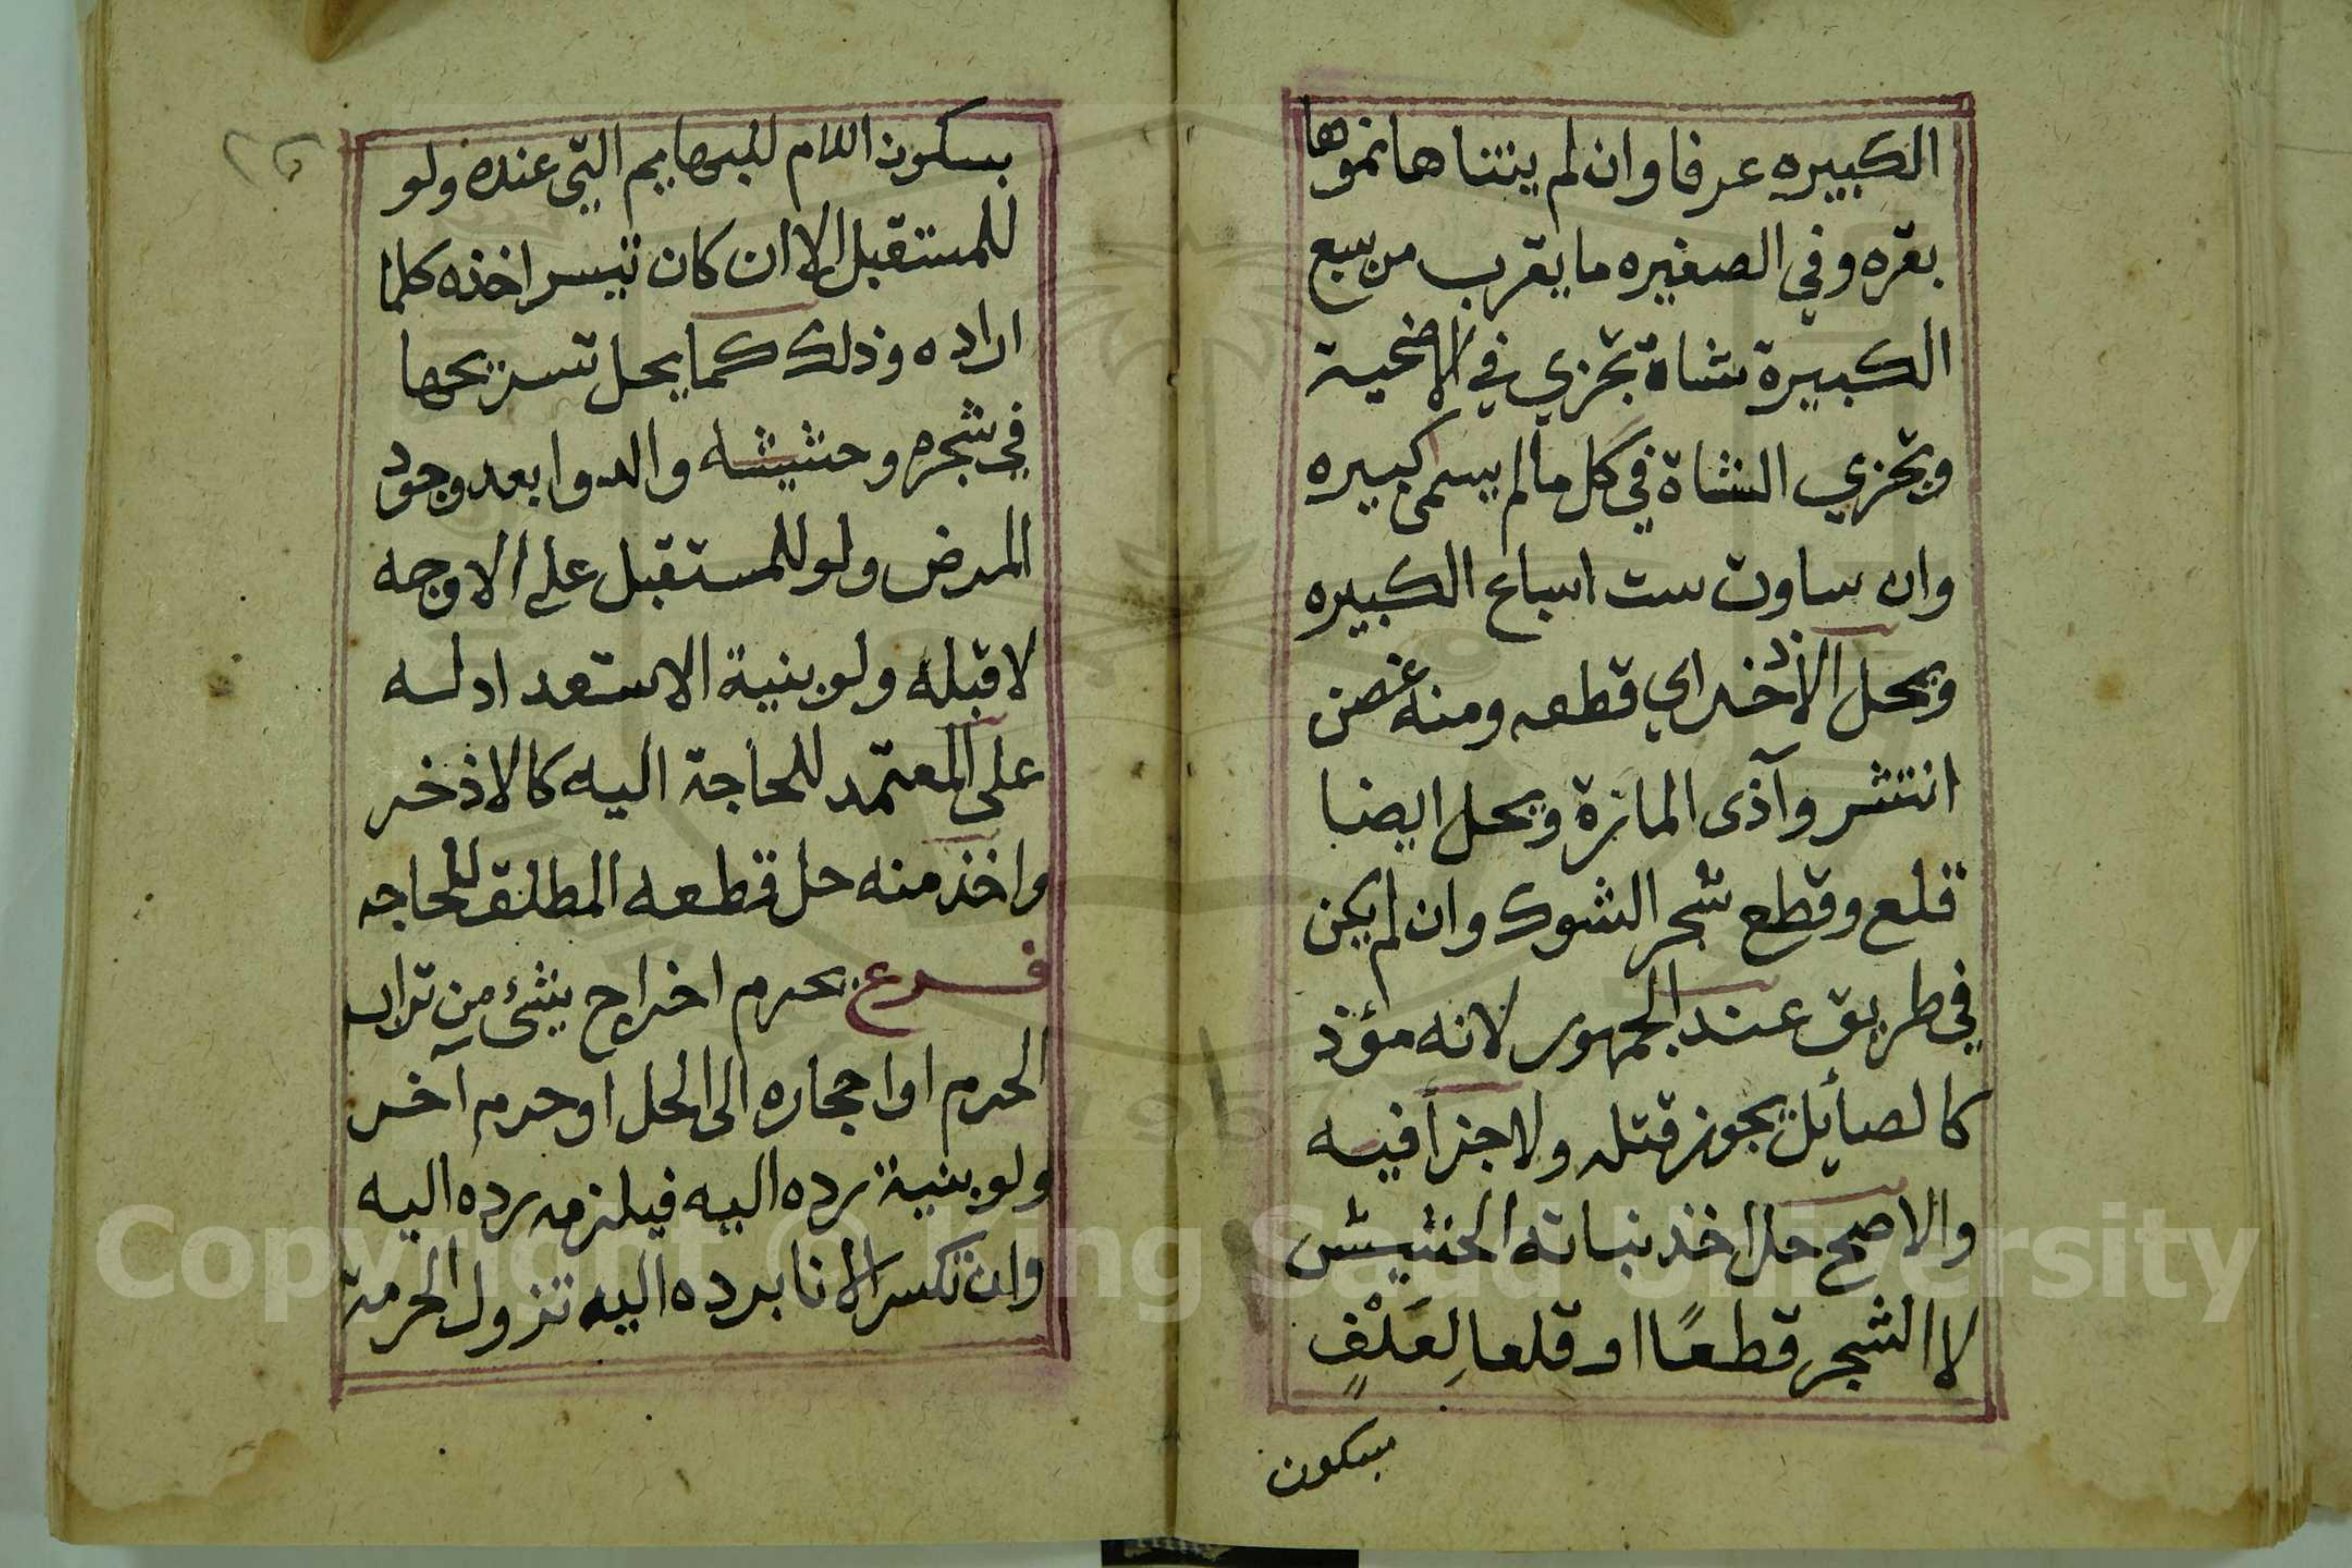 الكبيره عرفا وان لم يتناها نموها
بقره وفي الصغيره ما يقرب من سبع
الكبيرة شاة تجزي في الاضحية
وتجزي الشاة في كل ما لم يسمى كبيره
وان ساوت ست اسباع الكبيره
ويحل الاذخر اي قطعه ومنه غصن
انتشر وآذى المارة ويحل ايضا
قلع وقطع شجر الشوك وان لم يكن
في طريق عند الجمهور لانه مؤذ
كالصايل يجوز قتله ولا جزا فيه
والاصح حل اخذ نباته الحشيش
لا الشجر قطعًا او قلعا لِعَلْفٍ
بسكون
٢٥
بسكون اللام للبهايم التي عنده ولو
للمستقبل الا ان كان تيسر اخذه كلما
اراده وذلك كما يحل تسريحها
في شجره وحشيشه والدوا بعد وجود
المرض ولو للمستقبل على الاوجه
لا قبله ولو بنية الاستعداد له
على المعتمد للحاجة اليه كالاذخر
واخذ منه حل قطعه المطلق للحاجه
فرع يحرم اخراج شئ من تراب
الحرم او احجاره الى الحل او حرم آخر
ولو بنية رده اليه فيلزمه رده اليه
وان تكسر الانا برده اليه تزول الحرمة
Copyright © King Saud University
1957